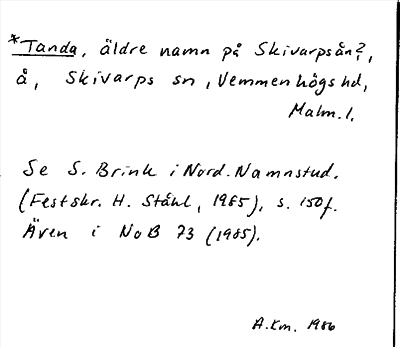 *Tanda, äldre namn på Skivarpsån?,
å, Skivarps sn, Vemmenhögs hd,
Malm. l.
Se S. Brink i Nord. Namnstud.
(Festskr. H. Ståhl, 1985), s. 150 f.
Även i NoB 73 (1985).
A.Km. 1986